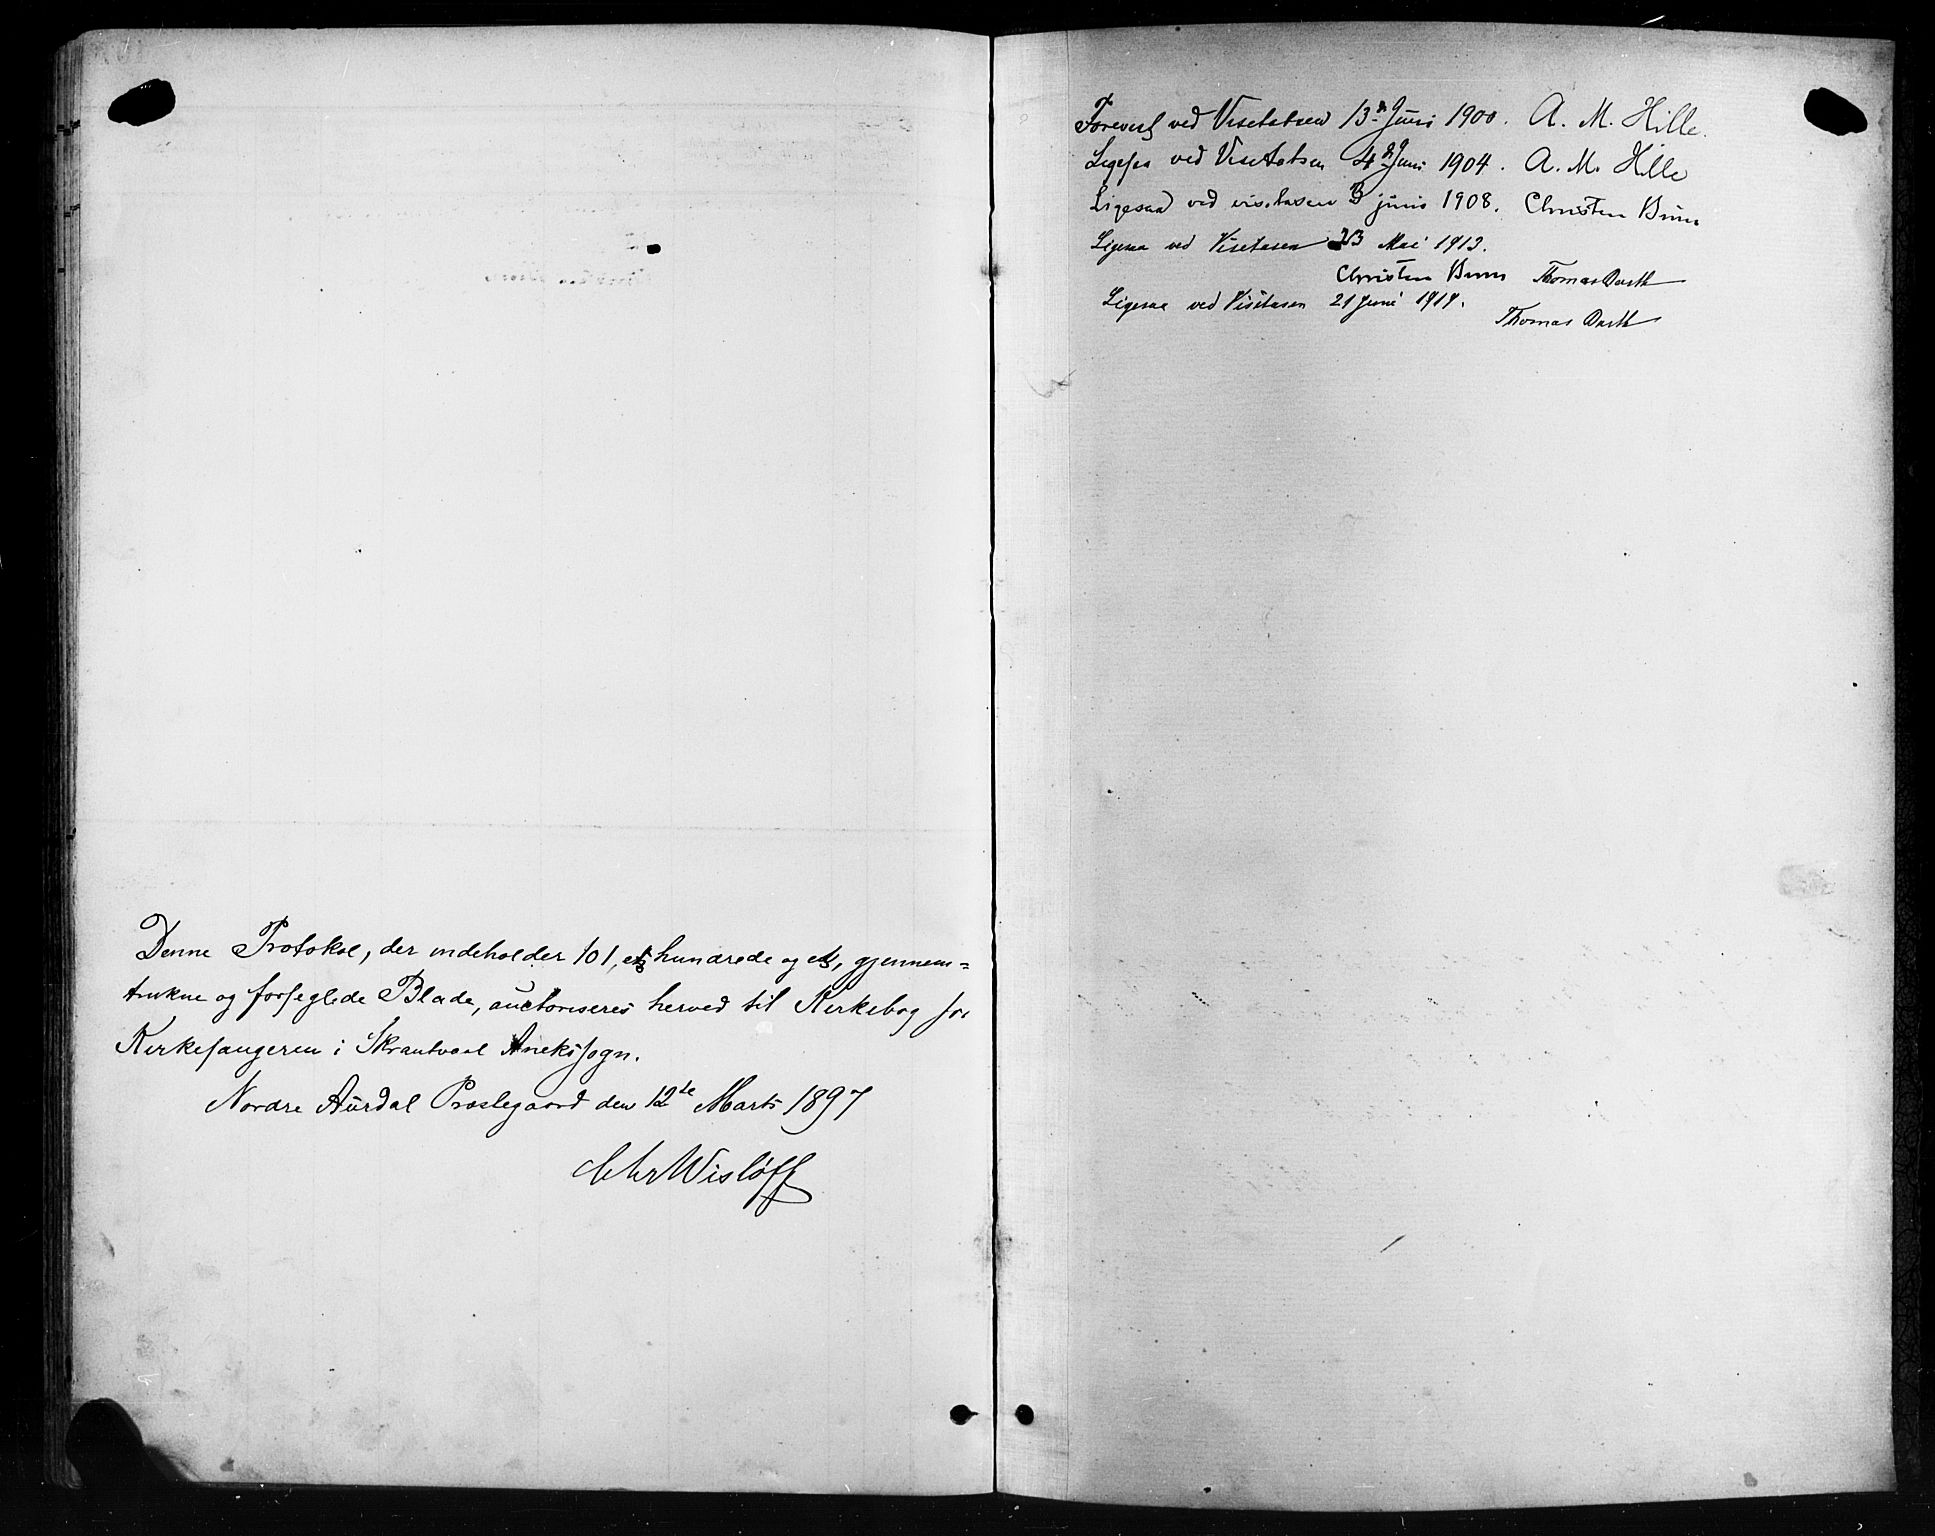 Denne Protokol, der indeholder 101, et hundrede og et, gjennem=
trukne og forseglede Blade, auctoriseres herved til Kirkebog for
Kirkesangeren i Skrautvaal Annekssogn.
Nordre Aurdal Præstegaard den 12te Marts 1897
Chr Wisløff
Forevist ved Visitatsen 13de Juni 1900. A. M. Hille.
Ligesaa ved Visitatsen 4de Juni 1904. A. M. Hille
Ligesaa ved visitasen 3 juni 1908. Christen Brun
Ligesaa ved Visitasen 23 Mai 1913.
Christen Brun Thomas Barth
Ligesaa ved Visitasen 21 Juni 1919.
Thomas Barth